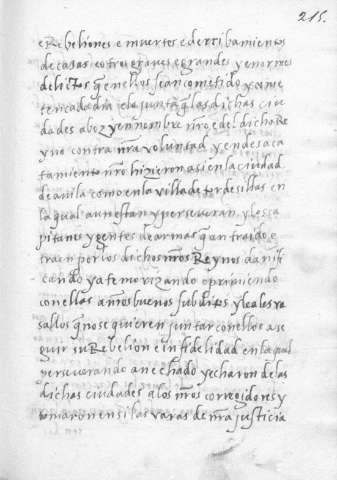 215.
e Rebeliones e muertes e derribamientos
de casas e otros graves e grandes y enormes
delictos q̃ en ellos sean cometido y a me
tencada dia e la junta q̃ las dichas ciu
dades a boz y en nombre nr̃o e del dicho Re
y no contra nr̃a voluntad y en desaca
tamiento nr̃o hizieron asi en la ciudad
de avila como en la villa de tordesillas en
la qual aun estan y perseveran y les ca
pitanes y gentes de armas q̃ an traido e
traen por los dichos nr̃os Reynos da nifi
cando y atemorizando e oprimiendo
con ellas a nr̃os buenos subditos y leales va
sallos q̃ no se quieren juntar con ellos a se
guir su Rebelion e infidelidad en la qual
perseverando an echado y echaron de las
dichas ciudades a los nr̃os corregidores y
tomaron en si las varas de nr̃a justicia